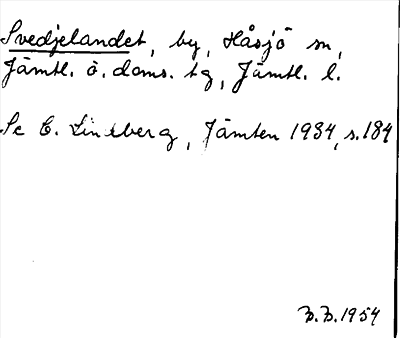 Svedjelandet, by, Håsjö sn,
Jämtl. ö. doms. tg, Jämtl. l.
Se C. Lindberg, Jämten 1934, s. 184
B.B. 1954